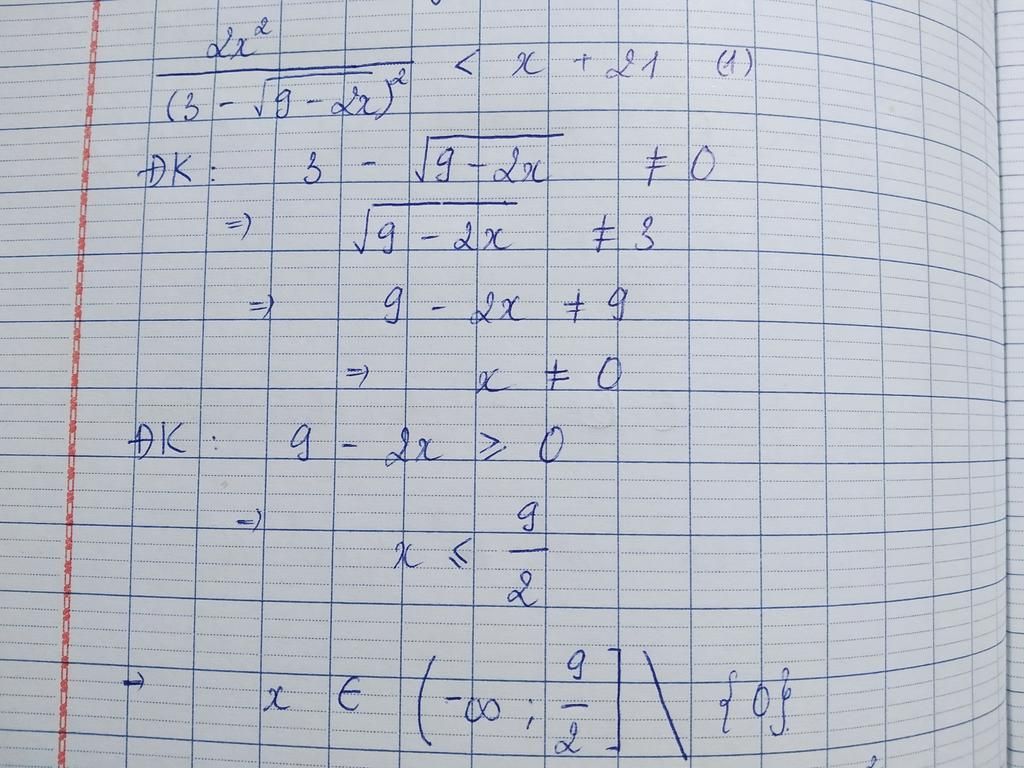 2x²
――――――――― < x + 21 (1)
(3 - √(9 - 2x))²
ĐK: 3 - √(9 - 2x) ≠ 0
=) √(9 - 2x) ≠ 3
=) 9 - 2x ≠ 9
=) x ≠ 0
ĐK: 9 - 2x ≥ 0
=) x ≤ 9/2
→ x ∈ (-∞; 9/2] \ {0}